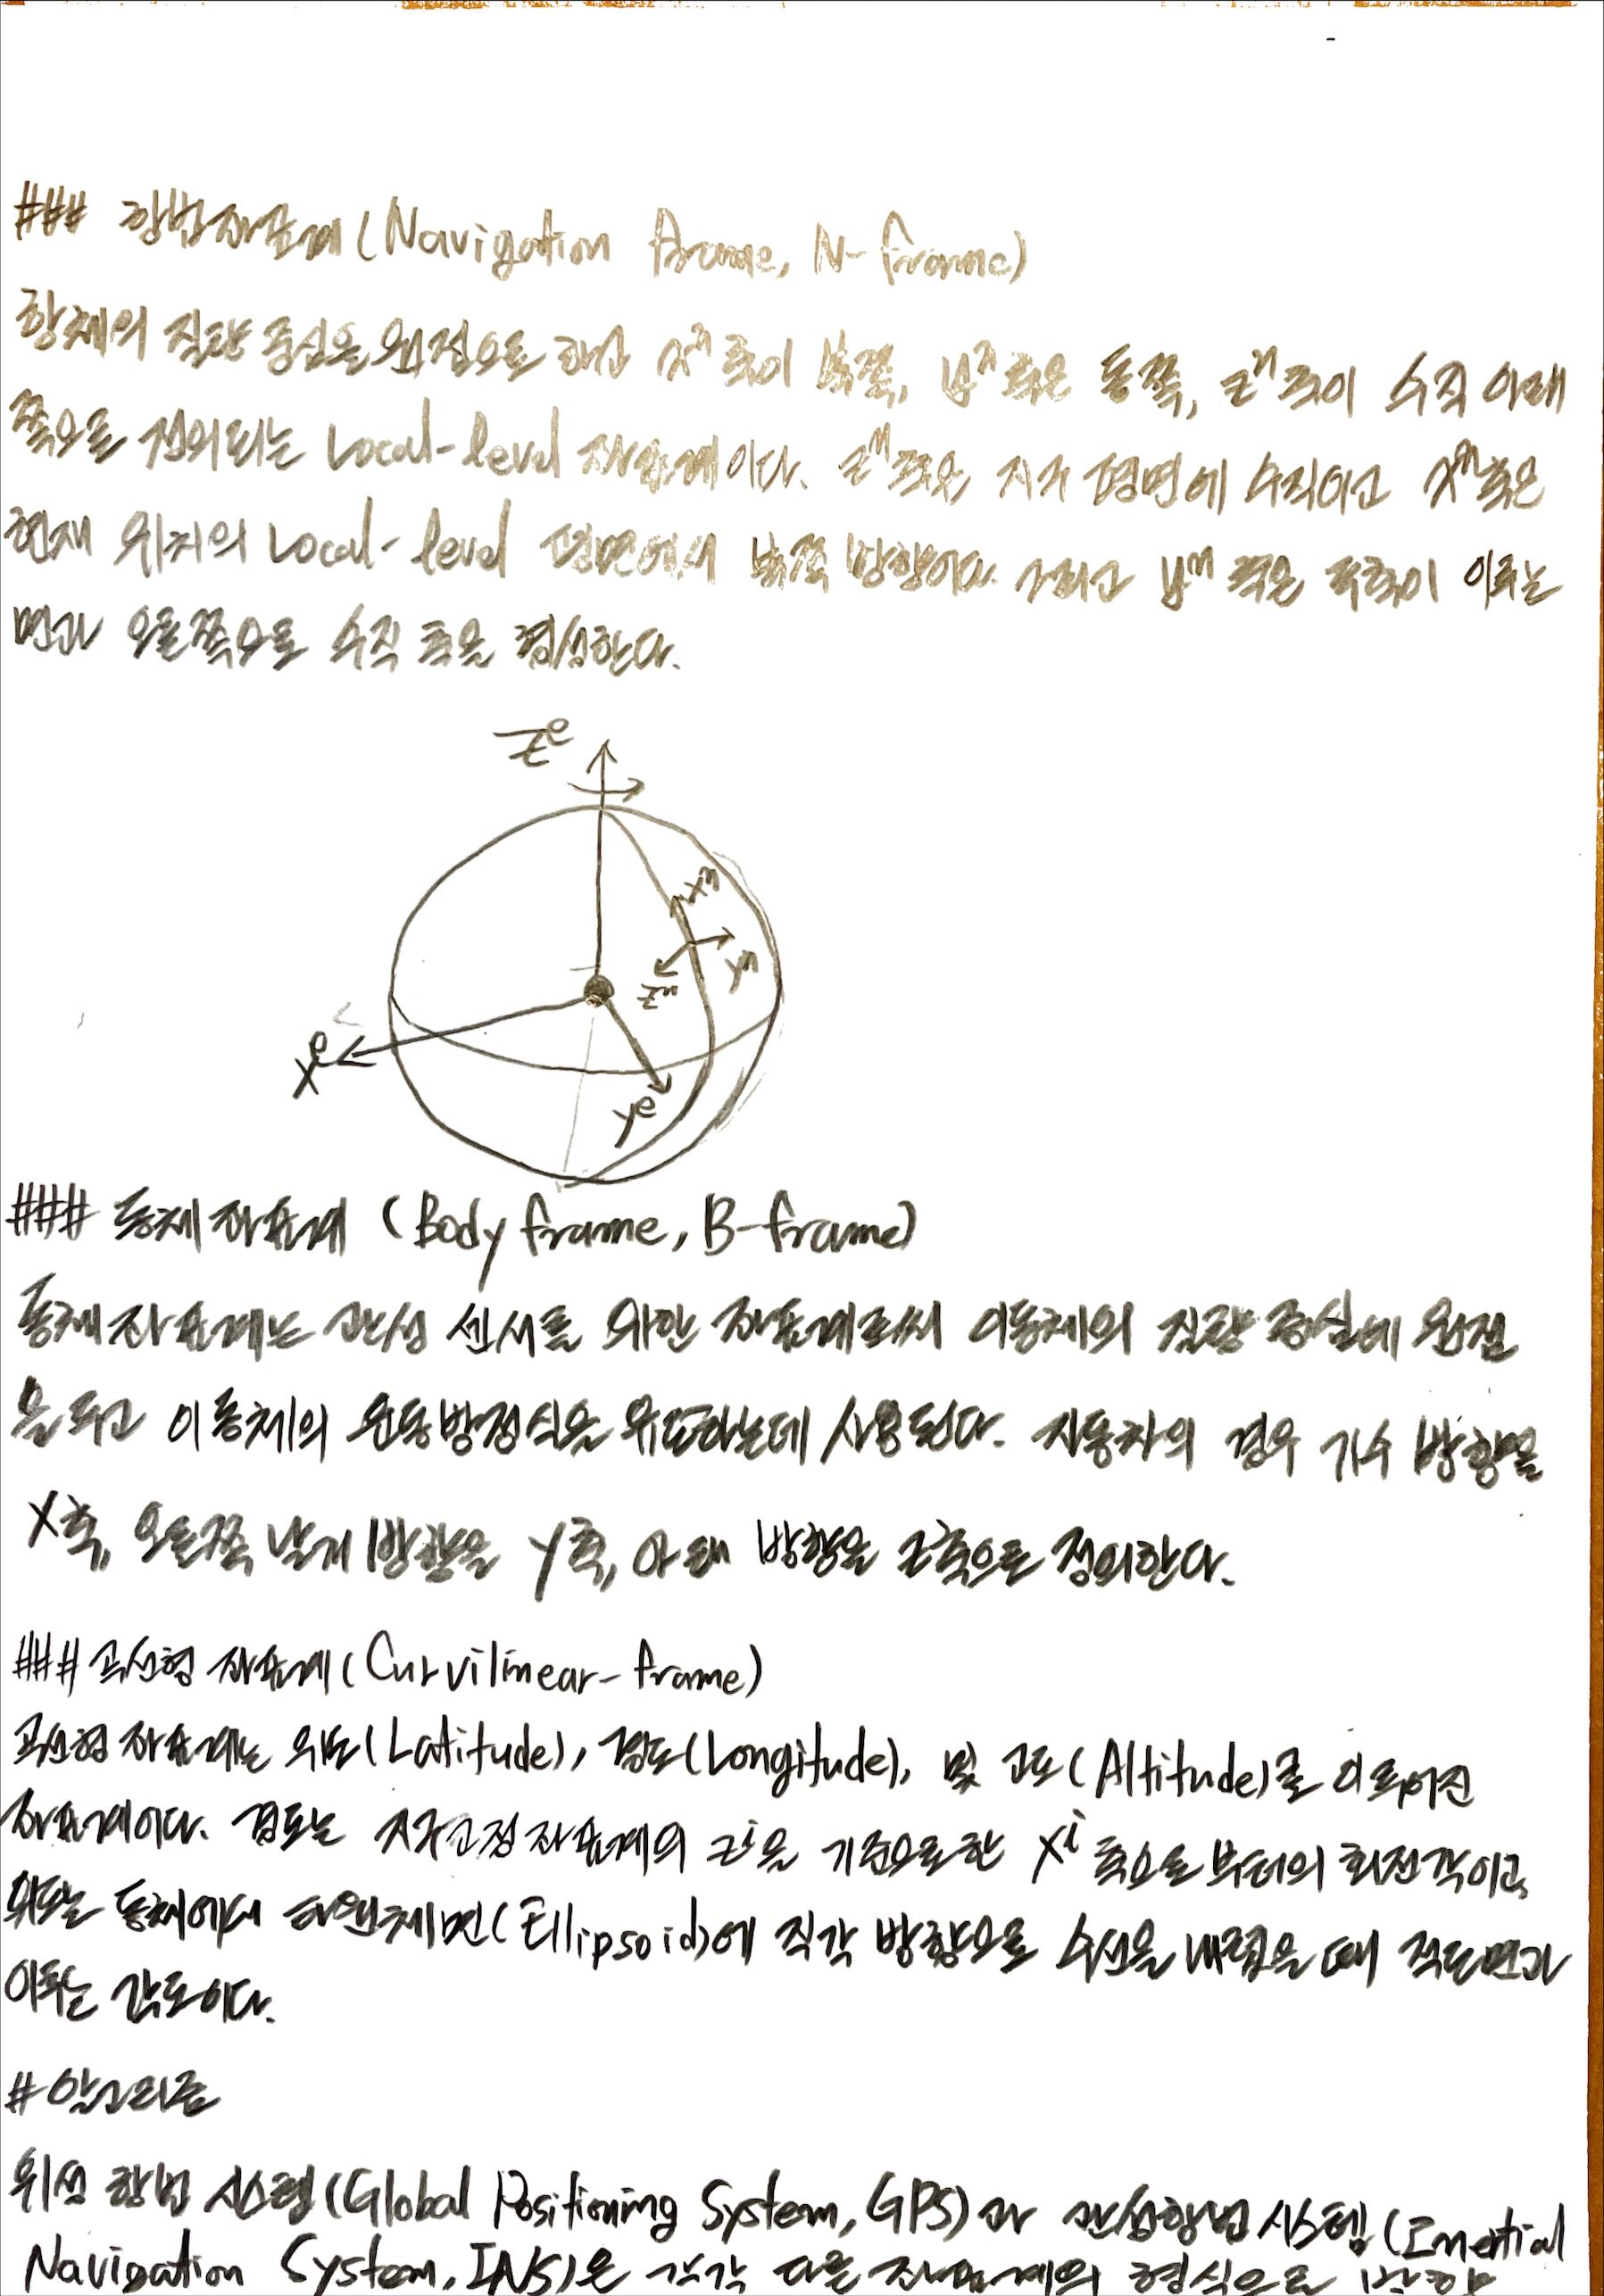 ### 항법좌표계(Navigation frame, N-frame)
항체의 질량 중심을 원점으로 하고 xⁿ축이 북쪽, yⁿ축은 동쪽, zⁿ축이 수직 아래
쪽으로 정의되는 Local-level 좌표계이다. zⁿ축은 지구 평면에 수직이고 xⁿ축은
현재 위치의 Local-level 평면에서 북쪽 방향이다. 그리고 yⁿ 축은 두축이 이루는
면과 오른쪽으로 수직 축을 형성한다.
Zᵉ
Xⁿ
Yⁿ
Zⁿ
Xᵉ
Yᵉ
### 동체 좌표계 (Body frame, B-frame)
동체 좌표계는 관성 센서를 위한 좌표계로써 이동체의 질량 중심에 원점
을 두고 이동체의 운동방정식을 유도하는데 사용된다. 자동차의 경우 기수 방향을
X축, 오른쪽 날개 방향을 Y축, 아래 방향을 Z축으로 정의한다.
### 곡선형 좌표계(Curvilinear-frame)
곡선형 좌표계는 위도(Latitude), 경도(Longitude), 및 고도(Altitude)로 이루어진
좌표계이다. 경도는 지구고정좌표계의 zⁱ을 기준으로한 Xⁱ 축으로부터의 회전각이고,
위도는 동체에서 타원체면(Ellipsoid)에 직각 방향으로 수선을 내렸을 때 적도면과
이루는 각도이다.
# 알고리즘
위성 항법 시스템(Global Positioning System, GPS)과 관성항법시스템(Inertial
Navigation System, INS)은 각각 다른 좌표계의 형식으로